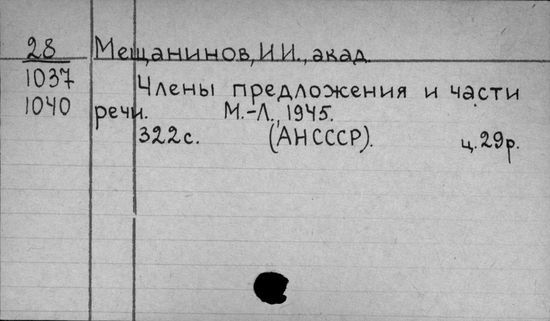 28 Мещанинов, И.И., акад.
1037 Члены предложения и части
1040 речи. М.-Л., 1945.
322с. (АНСССР). ц.29р.